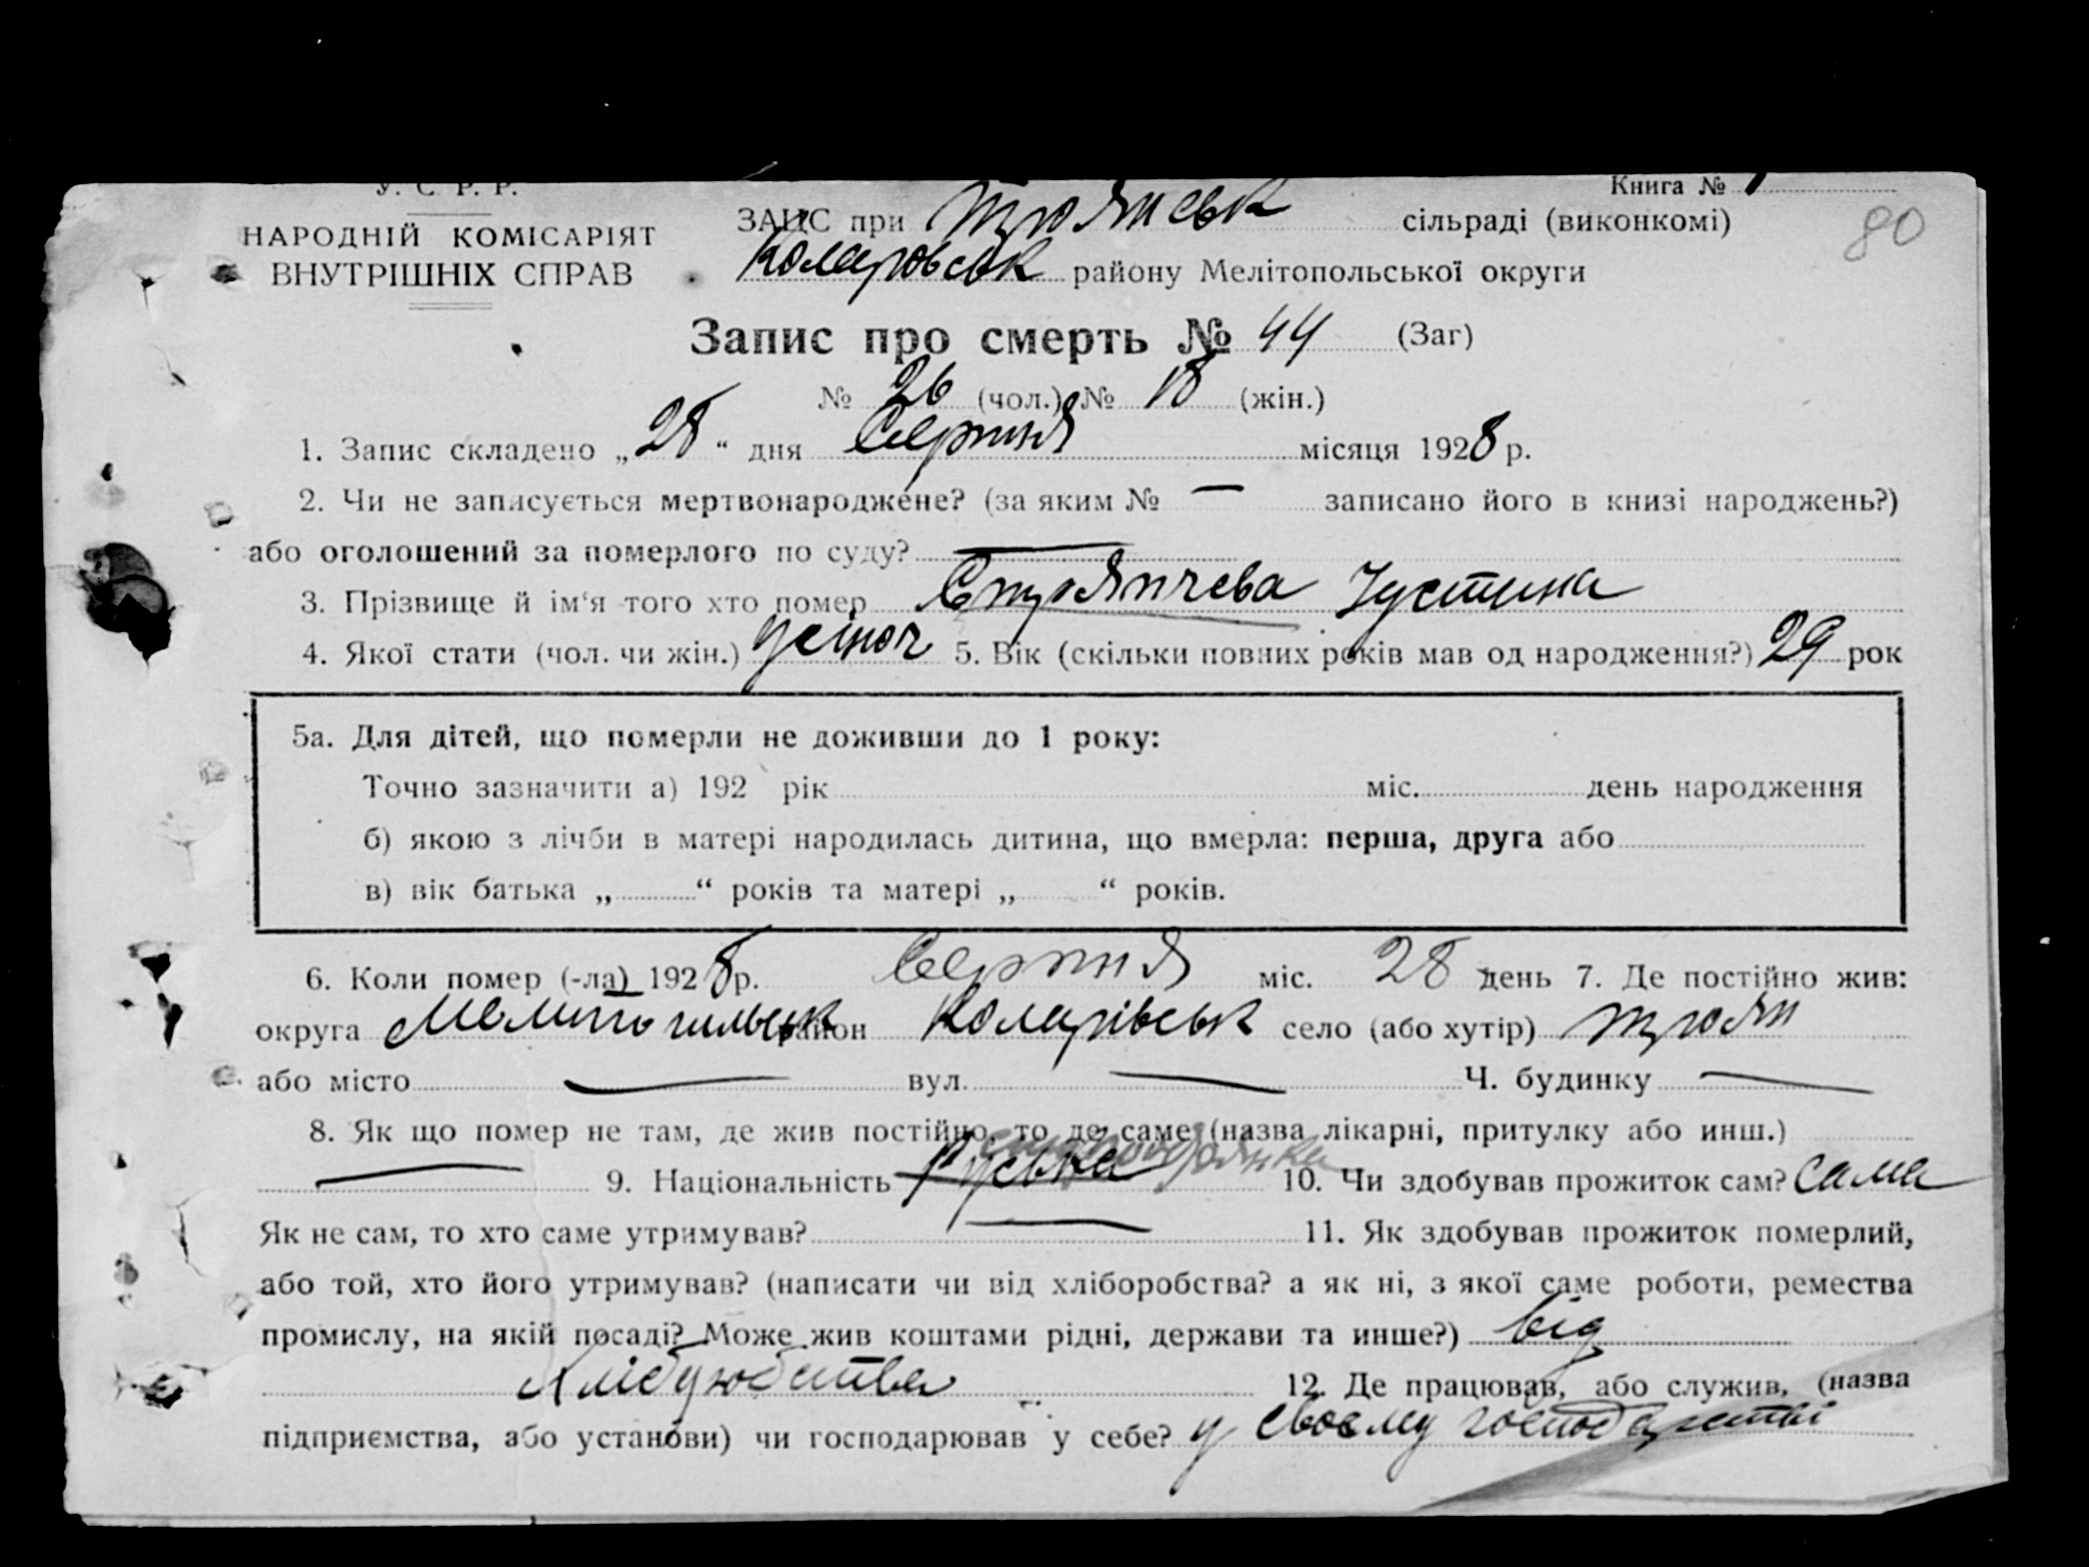 У. С. Р. Р.
Книга № 1
80
НАРОДНІЙ КОМІСАРІЯТ
ВНУТРІШНІХ СПРАВ
ЗАЦС при Троянськ сільраді (виконкомі)
Коларовськ району Мелітопольської округи
Запис про смерть № 44 (Заг)
№ 26 (чол.) № 18 (жін.)
1. Запис складено „28“ дня Серпня місяця 1928 р.
2. Чи не записується мертвонароджене? (за яким № — записано його в книзі народжень?)
або оголошений за померлого по суду? —
3. Прізвище й ім'я того хто помер Стряпчева Устина
4. Якої стати (чол. чи жін.) 5. Вік (скільки повних років мав од народження?) 29 рок
5а. Для дітей, що померли не доживши до 1 року:
Точно зазначити а) 192 рік міс. день народження
б) якою з лічби в матері народилась дитина, що вмерла: перша, друга або
в) вік батька „ “ років та матері „ “ років.
6. Коли помер (-ла) 1928 р. Серпня міс. 28 день 7. Де постійно жив:
округа район Коларівськ село (або хутір) Троян
або місто — вул. — Ч. будинку —
8. Як що помер не там, де жив постійно, то де саме (назва лікарні, притулку або инш.)
— 9. Національність Руська 10. Чи здобував прожиток сам? сама
Як не сам, то хто саме утримував? — 11. Як здобував прожиток померлий,
або той, хто його утримував? (написати чи від хліборобства? а як ні, з якої саме роботи, ремества
промислу, на якій посаді? Може жив коштами рідні, держави та инше?) від
12. Де працював, або служив, (назва
підприємства, або установи) чи господарював у себе? у своєму господарстві